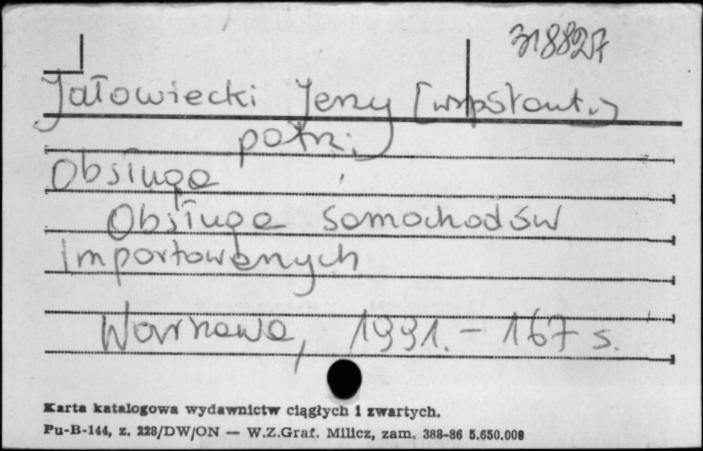 318827
Jałowiecki Jerzy [współaut.]
patrz:
Obsługa
Obsługa samochodów
importowanych
Warszawa, 1991. - 167 s.
Karta katalogowa wydawnictw ciągłych i zwartych.
Pu-B-144, z. 228/DW/ON — W.Z.Graf. Milicz, zam. 388-86 5.650.000